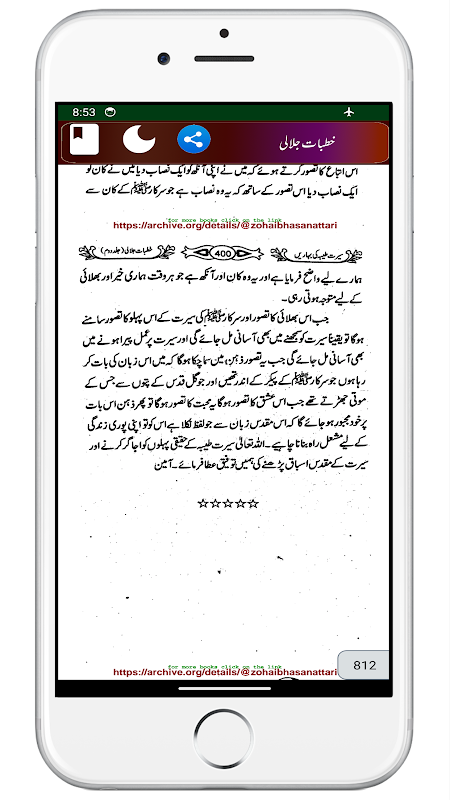 8:53
خطبات جلالی
اس اتباع کا تصور کرتے ہوئے کہ میں نے اپنی آنکھ کو ایک نصاب دیا میں نے کان کو
ایک نصاب دیا اس تصور کے ساتھ کہ یہ وہ نصاب ہے جو سرکار ﷺ کے کان سے
for more books click on the link
https://archive.org/details/@zohaibhasanattari
سیرت طیبہ کی بہاریں 400 خطبات جلالی (جلد دوم)
ہمارے لیے واضح فرمایا ہے اور یہ وہ کان اور آنکھ ہے جو ہر وقت ہماری خیر اور بھلائی
کے لیے متوجہ ہوتی رہی۔
جب اس بھلائی کا تصور اور سرکار ﷺ کی سیرت کے اس پہلو کا تصور سامنے
ہوگا تو یقیناً سیرت کو سمجھنے میں بھی آسانی مل جائے گی اور سیرت پر عمل پیرا ہونے میں
بھی آسانی مل جائے گی جب یہ تصور ذہن میں سما چکا ہوگا کہ میں اس زبان کی بات کر
رہا ہوں جو سرکار ﷺ کے پیکر کے اندر تھیں اور جو گل قدس کے پتوں سے جس کے
موتی جھڑتے تھے جب اس عشق کا تصور ہوگا یہ محبت کا تصور ہوگا تو پھر ذہن اس بات
پر خود مجبور ہو جائے گا کہ اس مقدس زبان سے جو لفظ نکلا ہے اس کو تو اپنی پوری زندگی
کے لیے مشعل راہ بنانا چاہیے۔ اللہ تعالی سیرت طیبہ کے حقیقی پہلوں کو اجاگر کرنے اور
سیرت کے مقدس اسباق پڑھنے کی ہمیں توفیق عطا فرمائے۔ آمین
☆☆☆☆☆
812
for more books click on the link
https://archive.org/details/@zohaibhasanattari